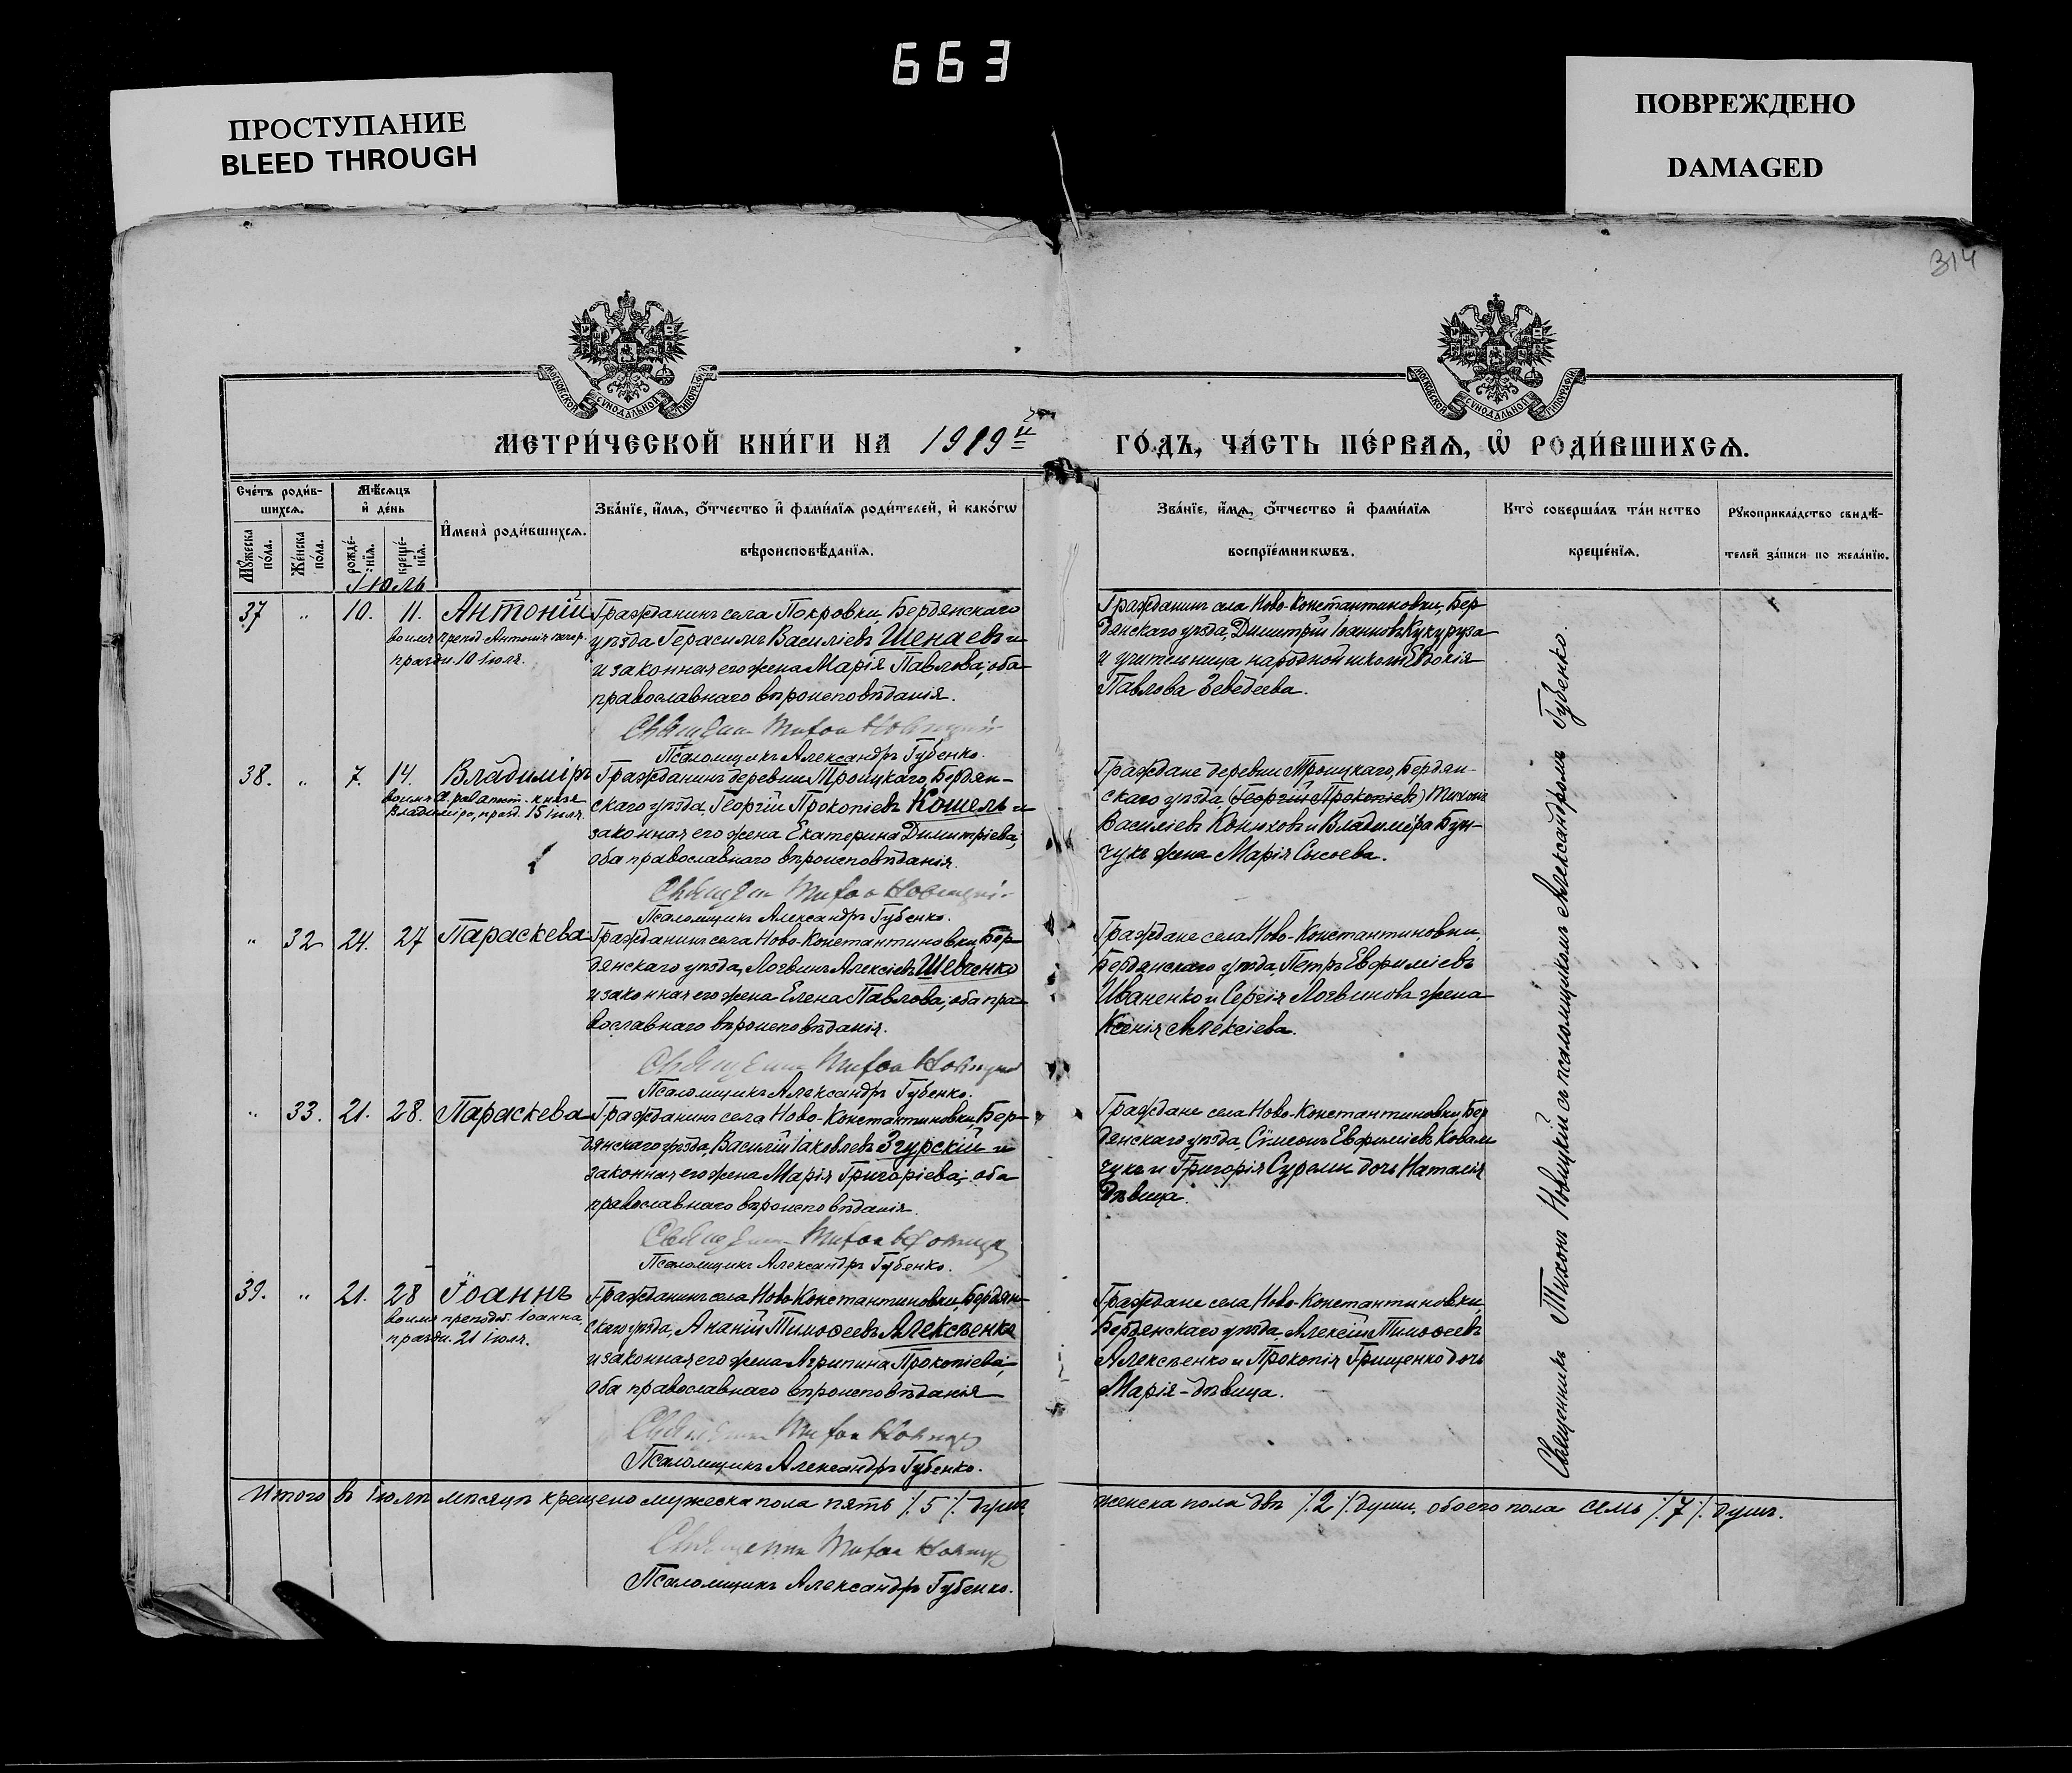 663
ПРОСТУПАНИЕ
BLEED THROUGH
ПОВРЕЖДЕНО
DAMAGED
314
МОСКОВСКОЙ СУНОДАЛЬНОЙ ТИПОГРАФІИ
МОСКОВСКОЙ СУНОДАЛЬНОЙ ТИПОГРАФІИ
МЕТРИ́ЧЕСКОЙ КНИ́ГИ НА 1919й
ГО́ДЪ, ЧА́СТЬ ПЕ́РВАѦ, Ѡ҆ РОДИ́ВШИХСѦ.
Сче́тъ роди́в-
шихсѧ.
Мꙋ́жеска
по́ла.
Же́нска
по́ла.
Мѣ́сѧцъ
и҆ де́нь
рожде́-
нїѧ.
креще́-
нїѧ.
И҆мена̀ роди́вшихсѧ.
Зва́нїе, и҆́мѧ, ѻ҆́тчество и҆ фами́лїѧ роди́телей, и҆ како́гѡ
вѣроисповѣ́данїѧ.
Зва́нїе, и҆́мѧ, ѻ҆́тчество и҆ фами́лїѧ
воспрїе́мникѡвъ.
Кто̀ соверша́лъ та́инство
креще́нїѧ.
Рꙋкоприкла́дство свидѣ́-
телей за́писи по жела́нїю.
Іюль
37 " 10. 11. Антоній
во имя препод. Антонія печер.
праздн. 10 іюля.
Гражданинъ села Покровки, Бердянскаго
уѣзда Герасимъ Василіевъ Шенаевъ и
и законная его жена Марія Павлова; оба
православнаго вѣроисповѣданія.
Псаломщикъ Александръ Губенко.
Гражданинъ села Ново-Константиновки, Бер
дянскаго уѣзда, Димитрій Іоанновъ Кукуруза
и учительница народной школы Евдокія
Павлова Зеведеева.
38. " 7. 14. Владиміръ
во имя Св. равноап. князя
Владиміра, празд. 15 іюля.
Гражданинъ деревни Троицкаго, Бердян-
скаго уѣзда, Георгій Прокопіевъ Кошель и
законная его жена Екатерина Димитріева;
оба православнаго вѣроисповѣданія.
Псаломщикъ Александръ Губенко.
Граждане деревни Троицкаго, Бердян-
скаго уѣзда, (Георгій Прокопіевъ) Тихонъ
Василіевъ Конюховъ и Владиміра Бун-
чукъ жена Марія Сысоева.
" 32 24. 27 Параскева
Гражданинъ села Ново-Константиновки, Бер-
дянскаго уѣзда, Логвинъ Алексіевъ Шевченко
и законная его жена Елена Павлова; оба пра-
вославнаго вѣроисповѣданія.
Псаломщикъ Александръ Губенко.
Граждане села Ново-Константиновки,
Бердянскаго уѣзда, Петръ Евфиміевъ
Иваненко и Сергія Логвинова жена
Ксенія Алексіева.
" 33. 21. 28. Параскева
Гражданинъ села Ново-Константиновки, Бер-
дянскаго уѣзда, Василій Іаковлевъ Згурскій и
законная его жена Марія Григоріева; оба
православнаго вѣроисповѣданія.
Псаломщикъ Александръ Губенко.
Граждане села Ново-Константиновки, Бер
дянскаго уѣзда, Сѵмеонъ Евфиміевъ Коваль
чукъ и Григорія дочь Наталія
дѣвица.
39. " 21. 28 Іоаннъ
во имя преподоб. Іоанна,
праздн. 21 іюля.
Гражданинъ села Ново-Константиновки, Бердян-
скаго уѣзда, Ананій Тимоѳеевъ Алексѣенко
и законная его жена Агрипина Прокопіева;
оба православнаго вѣроисповѣданія
Псаломщикъ Александръ Губенко.
Граждане села Ново-Константиновки,
Бердянскаго уѣзда, Алексій Тимоѳеевъ
Алексѣенко и Прокопія Грищенко дочь
Марія-дѣвица.
Священникъ Тихонъ Новицкій съ псаломщикомъ Александромъ Губенко.
Итого въ Іюлѣ мѣсяцѣ крещено мужеска пола пять /.5./ душъ,
женска пола двѣ /.2./ души, обоего пола семь /.7./ душъ.
Псаломщикъ Александръ Губенко.